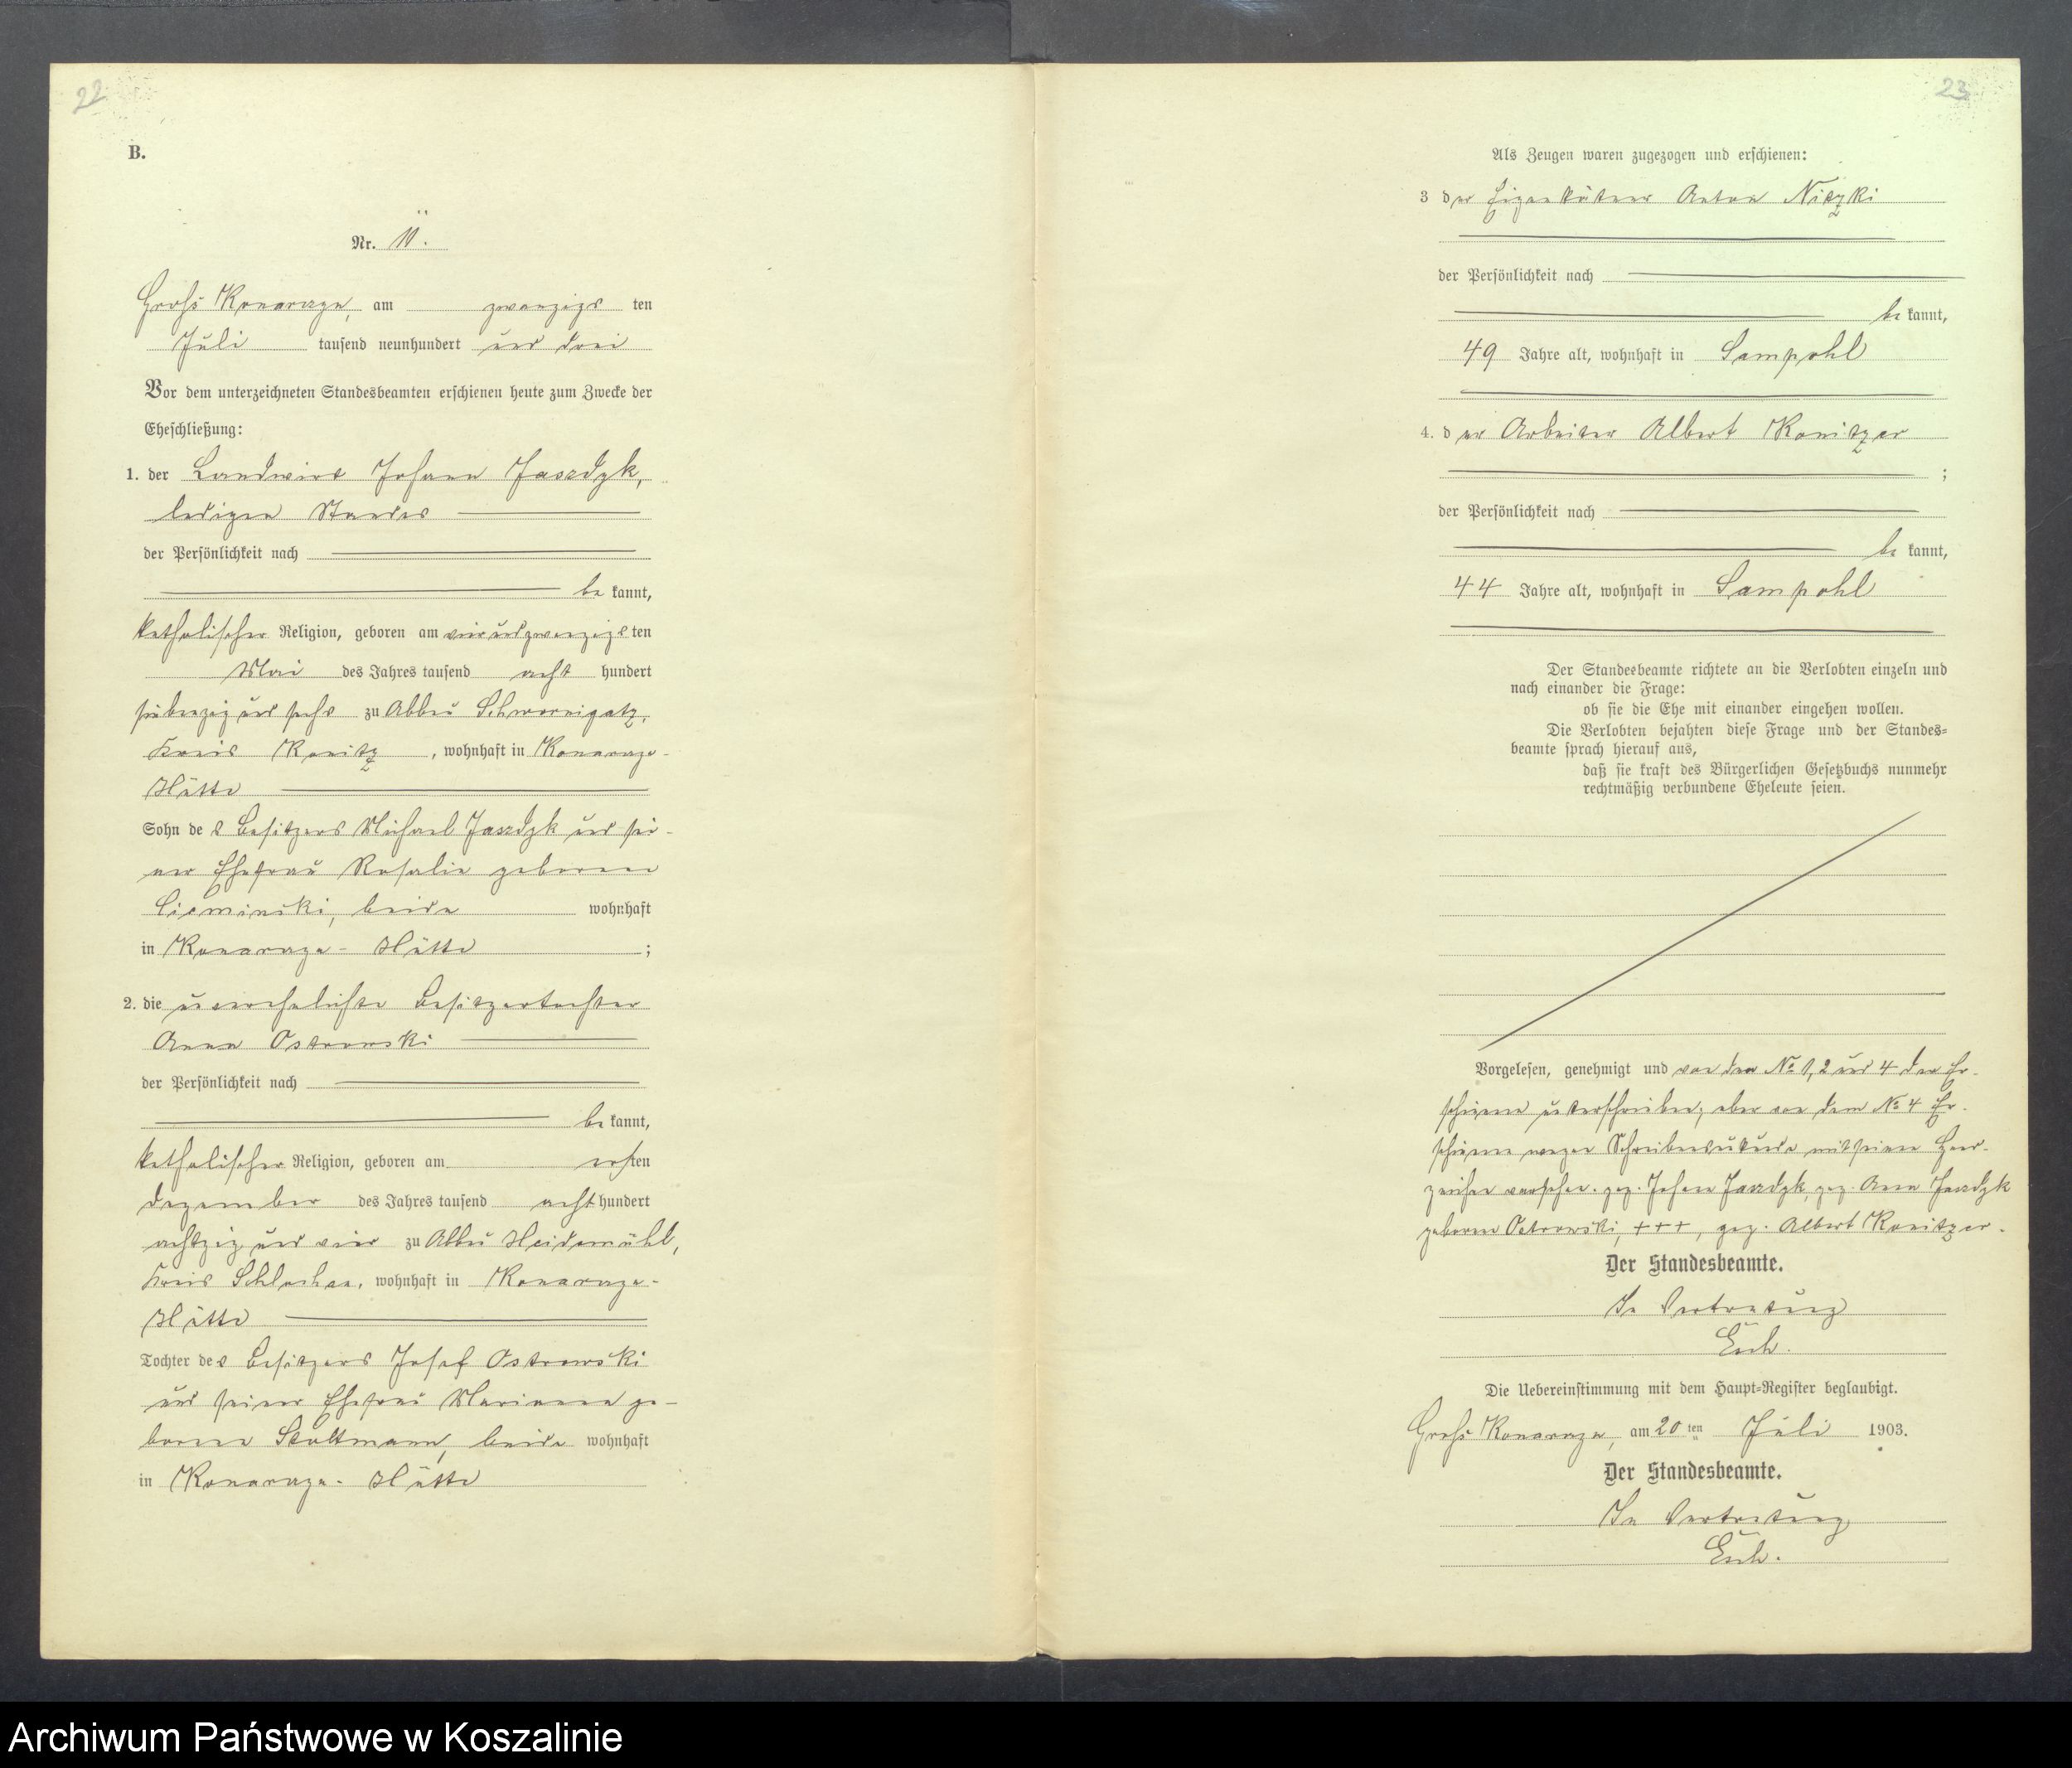 22
B.
Nr. 11.
Groß Konarczyn, am zwanzigs ten
Juli tausend neunhundert und drei
Vor dem unterzeichneten Standesbeamten erschienen heute zum Zwecke der
Eheschließung:
1. der Landwirt Johann
ledigen Standes
der Persönlichkeit nach
be kannt,
katholischer Religion, geboren am vierundzwanzigs ten
Mai des Jahres tausend acht hundert
siebenzig und sechs zu Abbau Schwornigatz,
Kreis Konitz, wohnhaft in
Hütte
Sohn des Besitzers Michael und sei-
ner Ehefrau Rosalie geborene
Cieminski, beide wohnhaft
in Hütte ;
2. die unverehelichte Besitzertochter
Anna Ostrowski
der Persönlichkeit nach
be kannt,
katholischer Religion, geboren am ersten
Dezember des Jahres tausend acht hundert
achtzig und vier zu Abbau Heidemühl,
Kreis Schlochau, wohnhaft in
Hütte
Tochter des Besitzers Josef Ostrowski
und seiner Ehefrau Marianna ge-
borene Stoltmann, beide wohnhaft
in Hütte
23
Als Zeugen waren zugezogen und erschienen:
3 der Eigenkätner Anton
der Persönlichkeit nach
be kannt,
49 Jahre alt, wohnhaft in Sampohl
4. der Arbeiter Albert Konitzer
;
der Persönlichkeit nach
be kannt,
44 Jahre alt, wohnhaft in Sampohl
Der Standesbeamte richtete an die Verlobten einzeln und
nach einander die Frage:
ob sie die Ehe mit einander eingehen wollen.
Die Verlobten bejahten diese Frage und der Standes-
beamte sprach hierauf aus,
daß sie kraft des Bürgerlichen Gesetzbuchs nunmehr
rechtmäßig verbundene Eheleute seien.
Vorgelesen, genehmigt und von den No 1, 2 und 4 den Er-
schienenen unterschrieben, aber von dem No 4 Er-
schienenen wegen Schreibensunkunde mit seinem Hand-
zeichen versehen. gez. Johann gez. Anna
geborene Ostrowski, +++, gez. Albert Konitzer.
Der Standesbeamte.
In Vertretung
Die Uebereinstimmung mit dem Haupt-Register beglaubigt.
Groß Konarczyn, am 20 ten Juli 1903.
Der Standesbeamte.
In Vertretung
Archiwum Państwowe w Koszalinie